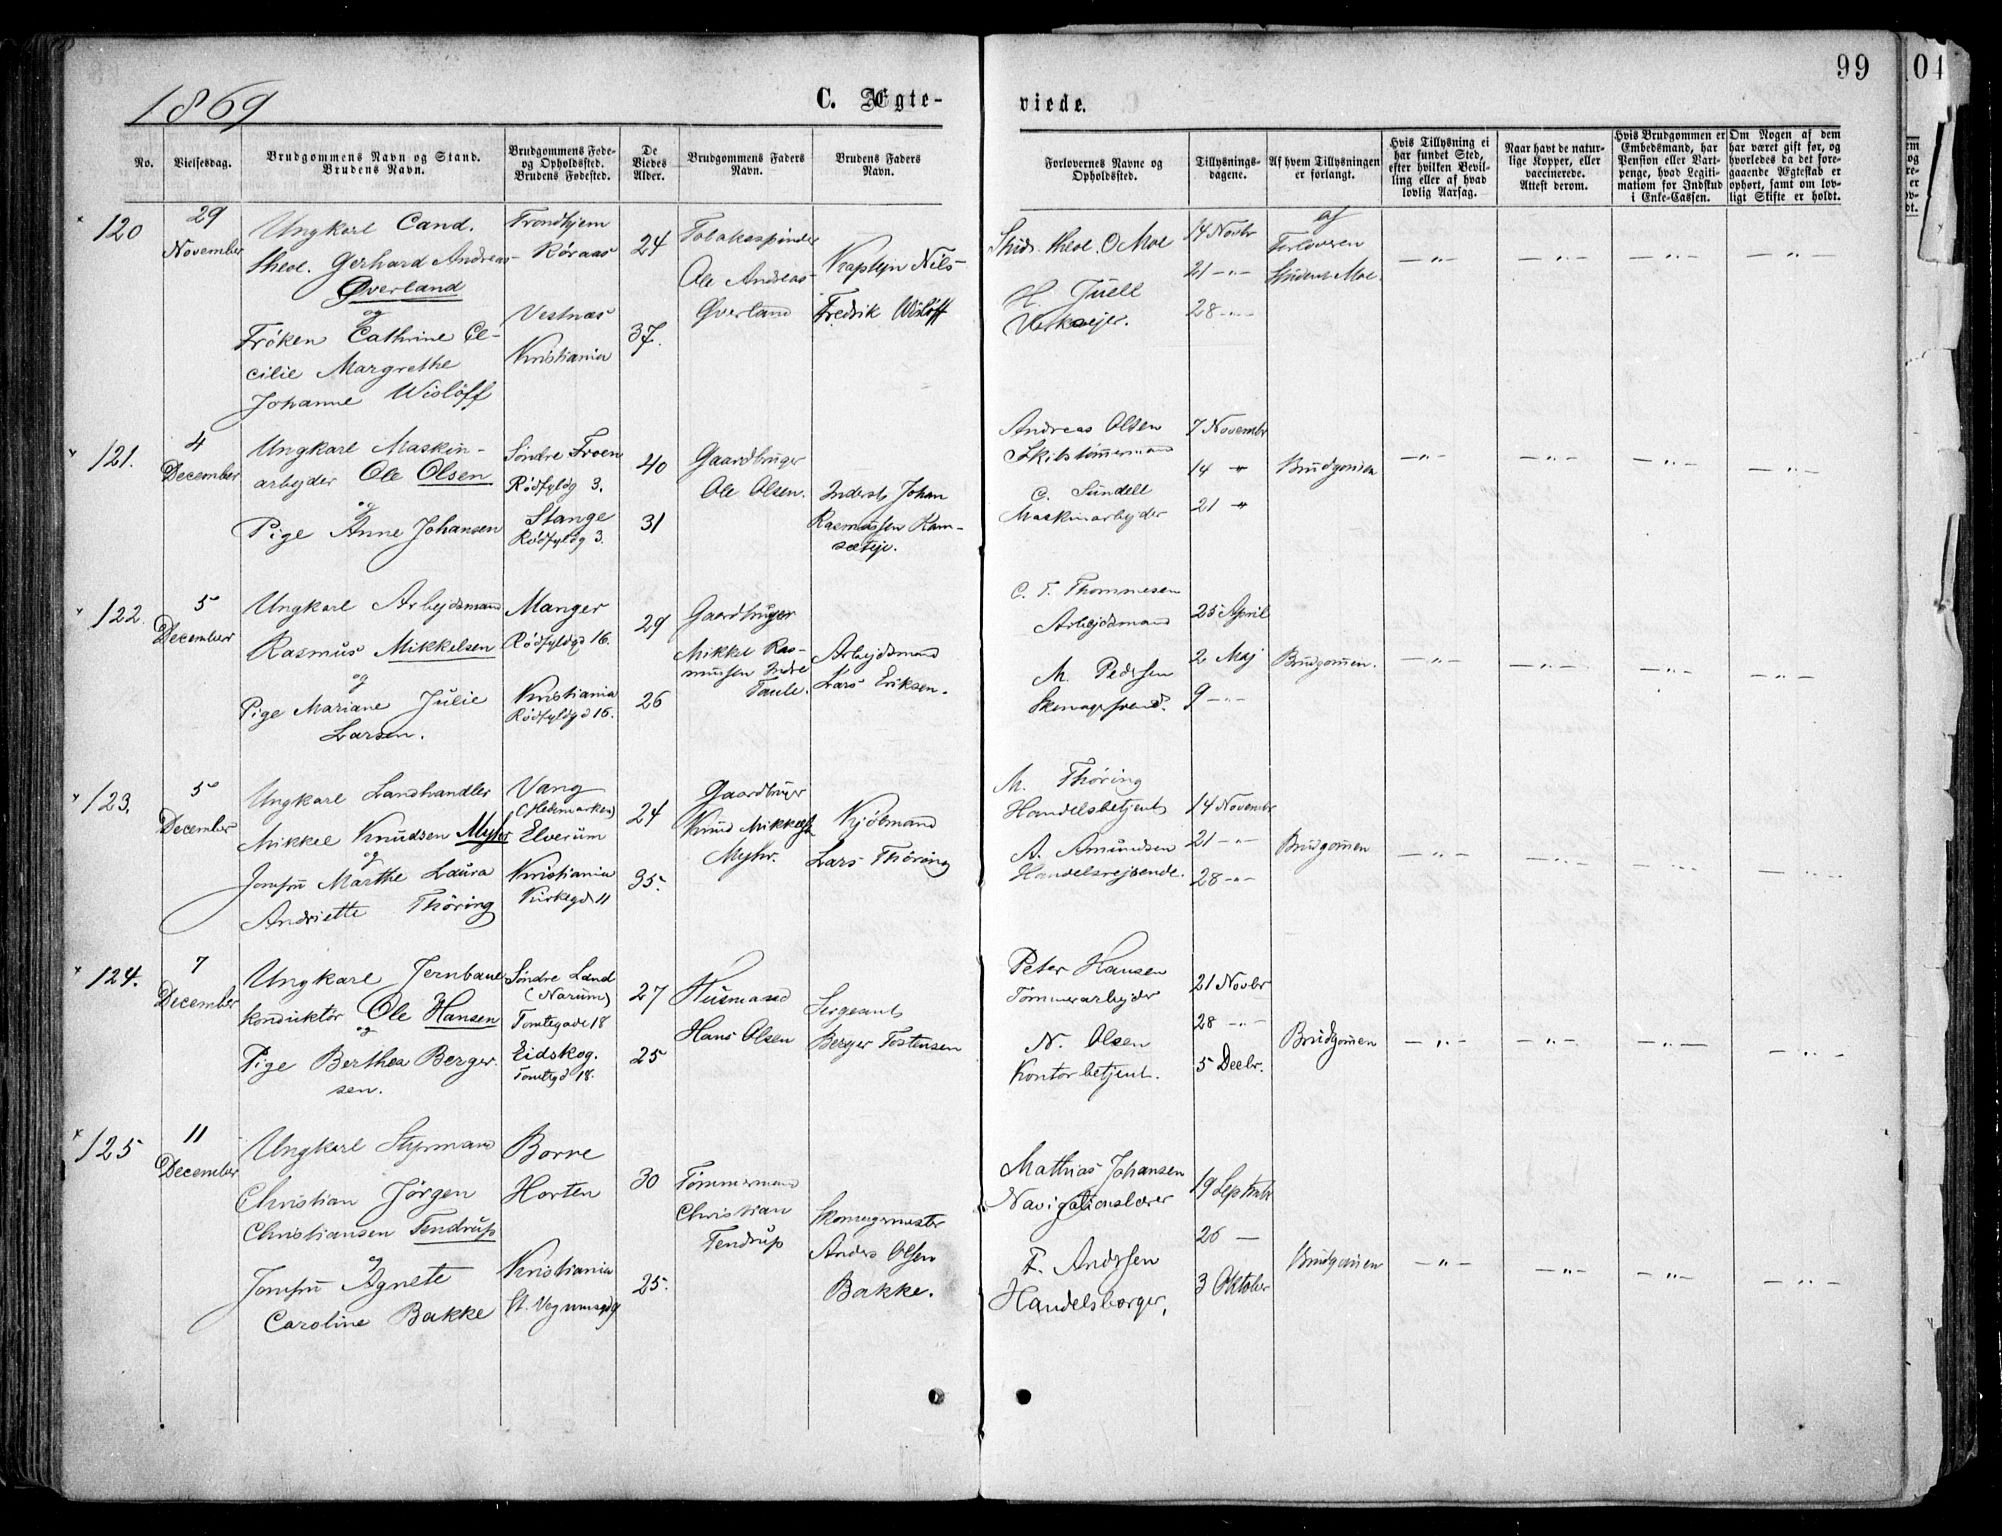 99
1869
C. Ægte-
viede.
No.
Vielsesdag.
Brudgommens Navn og Stand.
Brudens Navn.
Brudgommens Føde-
og Opholdssted.
Brudens Fødested.
De
Viedes
Alder.
Brudgommens Faders
Navn.
Brudens Faders
Navn.
Forlovernes Navne og
Opholdssted.
Tillysnings-
dagene.
Af hvem Tillysningen
er forlangt.
Hvis Tillysning ei
har fundet Sted,
efter hvilken Bevil-
ling eller af hvad
lovlig Aarsag.
Naar havt de natur-
lige Kopper, eller
vaccinerede.
Attest derom.
Hvis Brudgommen er
Embedsmand, har
Pension eller Vart-
penge, hvad Legiti-
mation for Indskud
i Enke-Cassen.
Om Nogen af dem
har været gift før, og
hvorledes da det fore-
gaaende Ægteskab er
ophørt, samt om lov-
ligt Skifte er holdt.
120
29
November
Ungkarl Cand.
theol. Gerhard Andreas
Øverland
og
Frøken Cathrine Ce-
cilie Margrethe
Johanne Wisløff
Trondhjem
Røraas
Vestnæs
Kristiania
24
37.
Tobakspinder
Ole Andreas
Øverland
Kaptejn Nils
Fredrik Wisløff
Stud. theol. O Moe
H. Juell
Værksejer.
14 Novbr
21 -„-
28 -„-
af
Forloveren
Student Moe.
121.
4
December
Ungkarl Maskin-
arbejder Ole Olsen
og
Pige Anne Johansen
Søndre Froen
Rødfyldg 3.
Stange
Rødfyldg 3.
40
31
Gaardbruger
Ole Olsen.
Inderst Johan
Rasmussen Ram-
sæteje.
Andreas Olsen
Skibstømmermand
C. Sundell
Maskinarbejder
7 Novembr
14 „
21 „
Brudgommen
122.
5
December
Ungkarl Arbejdsmand
Rasmus Mikkelsen
og
Pige Mariane Julie
Larsen.
Manger
Rødfyldgd 16.
Kristiania
Rødfyldgd 16.
29
26
Gaardbruger
Mikkel Ras-
mussen Indre
Taule.
Arbejdsmand
Lars Eriksen.
C. T. Thommesen
Arbejdsmand
M. Pedersen
Skomagersvend.
25 April
2 Maj
9 -„-
Brudgommen.
123.
5
December
Ungkarl Landhandler
Mikkel Knudsen Myhr
og
Jomfru Marthe Laura
Andriette Thöring
Vang
(Hedemarken)
Elverum
Kristiania
Kirkegd 11
24
35.
Gaardbruger
Knud Mikkels
Myhr.
Kjøbmand
Lars Thöring
M. Thöring
Handelsbetjent
A. Amundsen
Handelsrejsende.
14 Novembr
21 -„-
28 -„-
Brudgommen
124.
7
December
Ungkarl Jernbane
konduktør Ole Hansen
og
Pige Berthea Berger-
sen.
Søndre Land
(Narum)
Tomtegade 18
Eidskog.
Tomtegd 18.
27
25
Husmand
Hans Olsen
Sergeant
Berger Tostensen
Peter Hansen
Tømmerarbejder
N. Olsen
Kontorbetjent.
21 Novbr
28 -„-
5 Decbr.
Brudgommen
125
11
December
Ungkarl Styrmand
Christian Jörgen
Christiansen Tendrup
og
Jomfru Agnete
Caroline Bakke
Borre
Horten
Kristiania
30
25.
Tømmermand
Christian
Tendrup
Skomagermester
Anders Olsen
Bakke.
Mathias Johansen
Navigationslærer
F. Andersen
Handelsborger,
19 Septembr
26 —
3 Oktober
Brudgommen